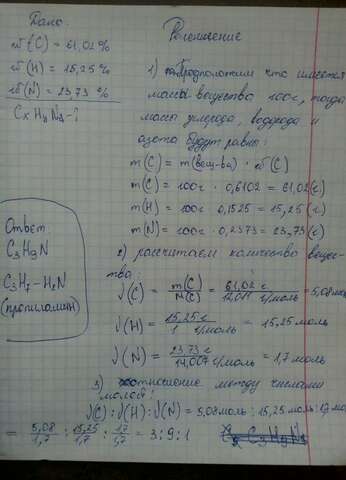 Дано:
ω(C) = 61,02 %
ω(H) = 15,25 %
ω(N) = 23,73 %
CxHyNz-?
Решение
1) Предположим что имеется
масса вещество 100г, тогда
массы углерода, водорода и
азота будут равны:
m(C) = m(вещ-ва) · ω(C)
m(C) = 100г · 0,6102 = 61,02 (г)
m(H) = 100г · 0,1525 = 15,25 (г)
m(N) = 100г · 0,2373 = 23,73 (г)
2) рассчитаем количество вещес-
тва:
ν(C) = m(C)/N(C) = 61,02 г/12,011 г/моль = 5,08моль
ν(H) = 15,25г/1 г/моль = 15,25 моль
ν(N) = 23,73/14,007 г/моль = 1,7 моль
3) соотношение между числами
молей:
ν(C):ν(H):ν(N) = 5,08моль:15,25моль:1,7 моль
= 5,08/1,7 : 15,25/1,7 : 1,7/1,7 = 3:9:1
Ответ
C3H9N
C3H7-H2N
(пропиламин)